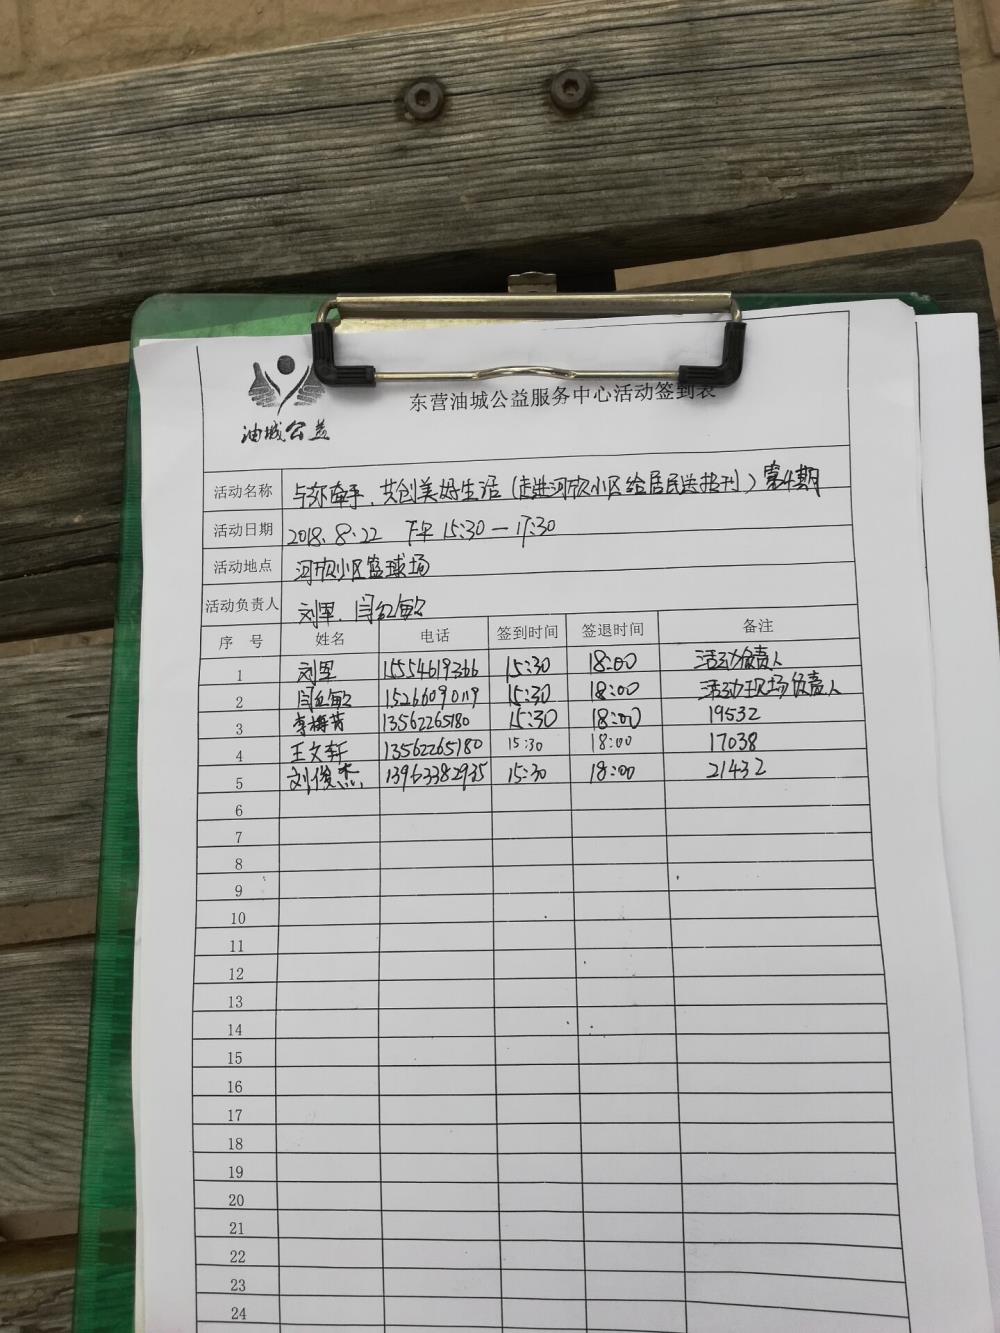 油城公益
东营油城公益服务中心活动签到表
活动名称 与你牵手、共创美好生活(走进河欣小区给居民送报刊)第4期
活动日期 2018.8.22 下午 15:30—17:30
活动地点 河欣小区篮球场
活动负责人 刘军、闫红敏
序 号 姓名 电话 签到时间 签退时间 备注
1 刘军 15554619366 15:30 18:00 活动负责人
2 闫红敏 15266090119 15:30 18:00 活动现场负责人
3 李梅芳 13562265180 15:30 18:00 19532
4 王文轩 13562265180 15:30 18:00 17038
5 刘俊杰 13963382935 15:30 18:00 21432
6
7
8
9
10
11
12
13
14
15
16
17
18
19
20
21
22
23
24